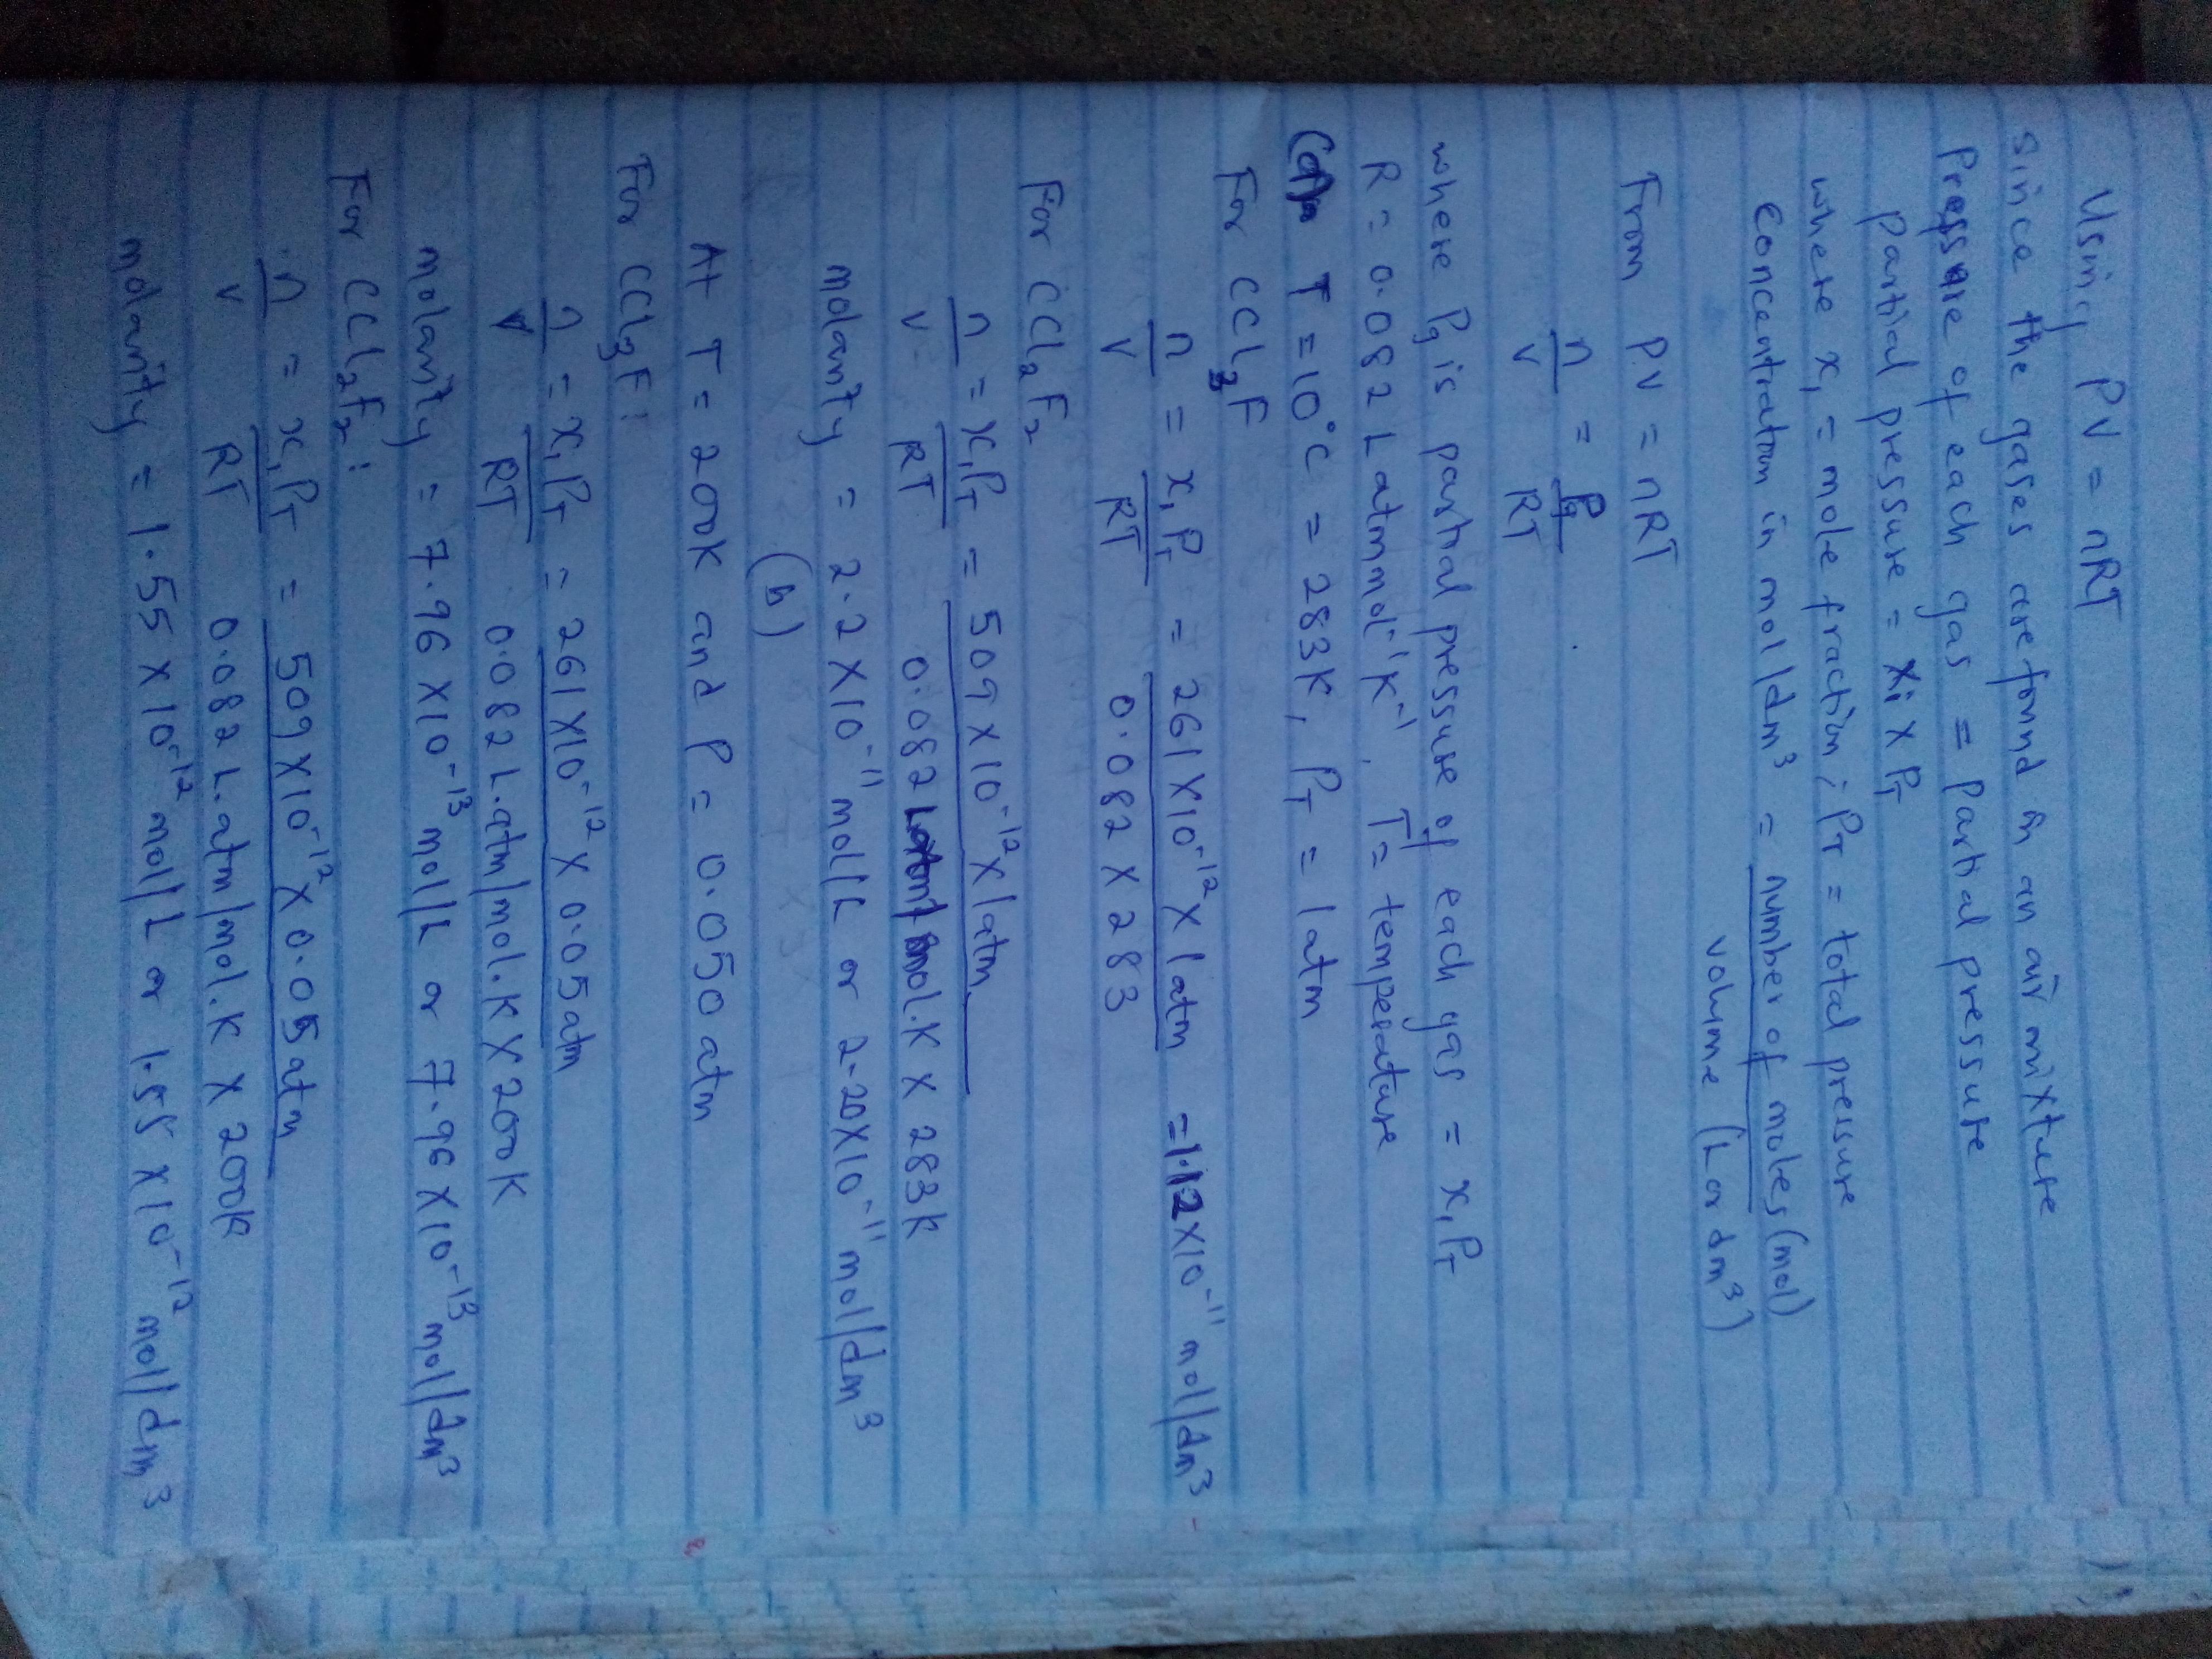 Using PV = nRT
since the gases are found in an air mixture
Pressure of each gas = partial pressure
partial pressure = xi x PT
where x1 = mole fraction; PT = total pressure
concentration in mol/dm³ = number of moles (mol)
volume (L or dm³)
From PV = nRT
n/V = Pg/RT
where Pg is partial pressure of each gas = x1PT
R = 0.082 L atm mol⁻¹ K⁻¹, T = temperature
(a) T = 10°C = 283K, PT = 1 atm
For CCl3F
n/V = x1PT/RT = 261 X 10⁻¹² X 1 atm / 0.082 X 283 = 1.12 X 10⁻¹¹ mol/dm³
For CCl2F2
n/V = x1PT/RT = 509 X 10⁻¹² X 1 atm / 0.082 L atm/mol.K X 283K
molarity = 2.2 X 10⁻¹¹ mol/L or 2.20 X 10⁻¹¹ mol/dm³
(b)
At T = 200K and P = 0.050 atm
For CCl3F:
n/V = x1PT/RT = 261 X 10⁻¹² X 0.05 atm / 0.082 L.atm/mol.K X 200K
molarity = 7.96 X 10⁻¹³ mol/L or 7.96 X 10⁻¹³ mol/dm³
For CCl2F2:
n/V = x1PT/RT = 509 X 10⁻¹² X 0.05 atm / 0.082 L.atm/mol.K X 200K
molarity = 1.55 X 10⁻¹² mol/L or 1.55 X 10⁻¹² mol/dm³